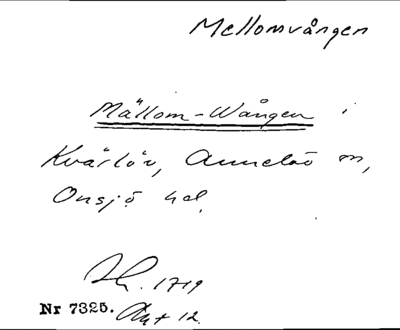 Mellomvången
Mällom-Wången i
Kvärlöv, Annelöv sn,
Onsjö hd.
1719
Nr 7325. Akt 12.